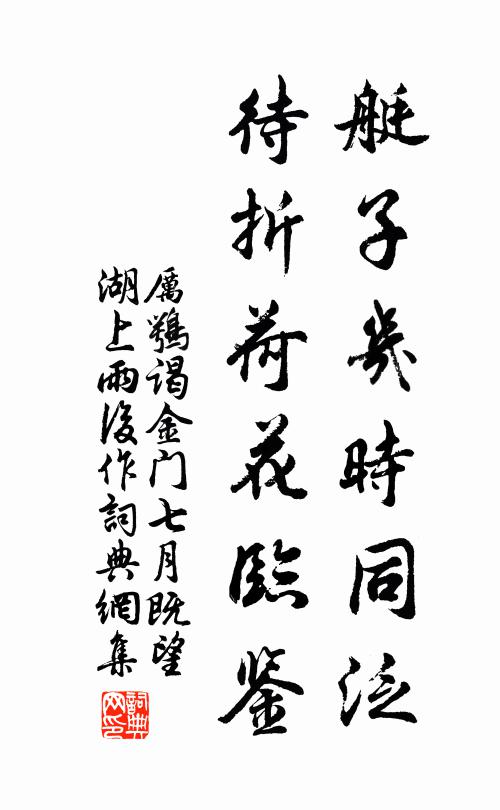 艇子幾時同泛
待折荷花臨鉴
厲鶚谒金门七月既望
湖上雨後作詞典網集
詞典
网印